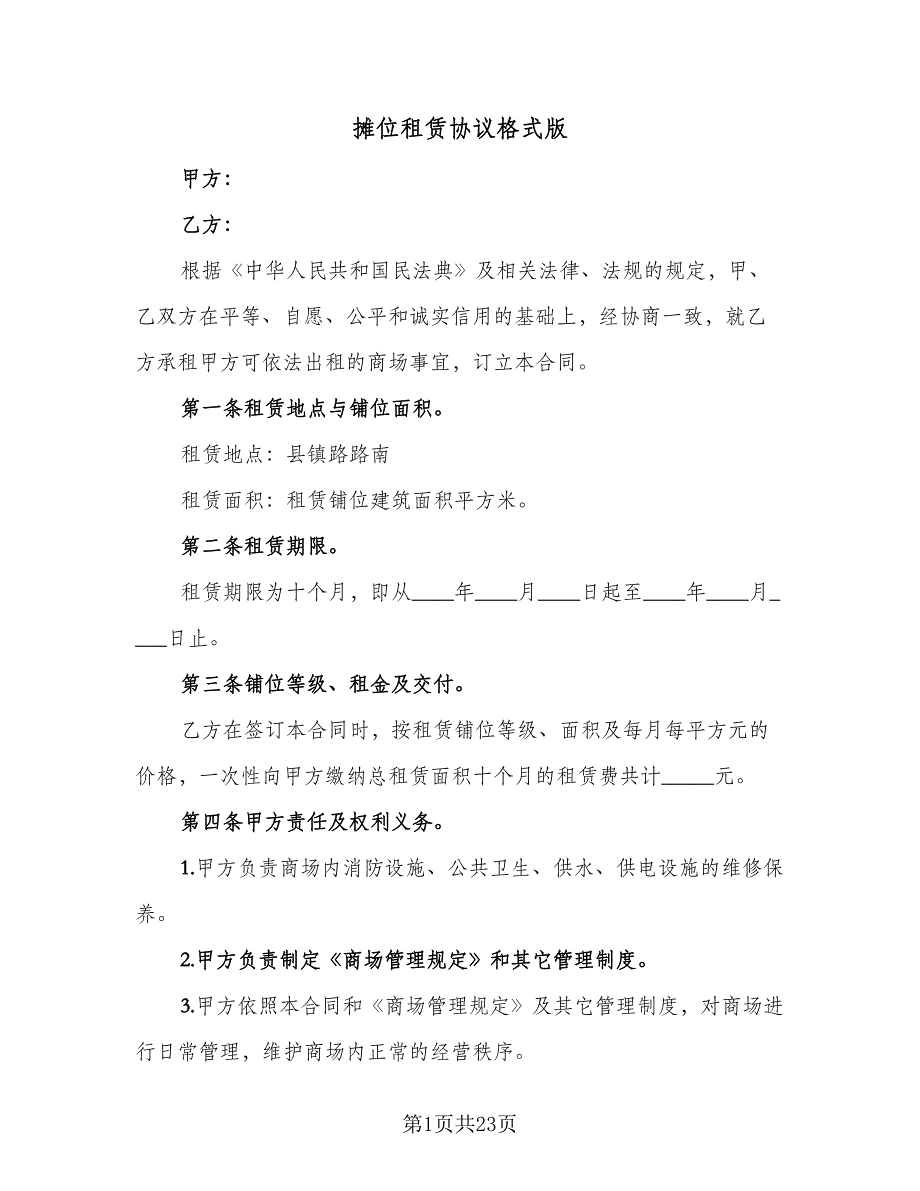 摊位租赁协议格式版
甲方：
乙方：
根据《中华人民共和国民法典》及相关法律、法规的规定，甲、
乙双方在平等、自愿、公平和诚实信用的基础上，经协商一致，就乙
方承租甲方可依法出租的商场事宜，订立本合同。
第一条租赁地点与铺位面积。
租赁地点：县镇路路南
租赁面积：租赁铺位建筑面积平方米。
第二条租赁期限。
租赁期限为十个月，即从____年____月____日起至____年____月_
___日止。
第三条铺位等级、租金及交付。
乙方在签订本合同时，按租赁铺位等级、面积及每月每平方元的
价格，一次性向甲方缴纳总租赁面积十个月的租赁费共计_____元。
第四条甲方责任及权利义务。
1.甲方负责商场内消防设施、公共卫生、供水、供电设施的维修保
养。
2.甲方负责制定《商场管理规定》和其它管理制度。
3.甲方依照本合同和《商场管理规定》及其它管理制度，对商场进
行日常管理，维护商场内正常的经营秩序。
第1页共23页